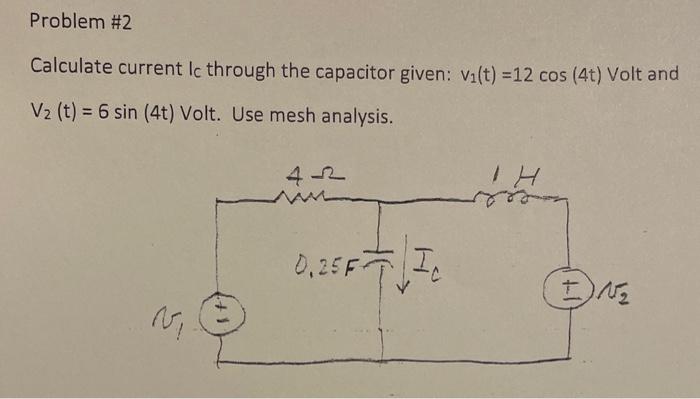 Problem #2
Calculate current Ic through the capacitor given: v₁(t) =12 cos (4t) Volt and
V₂ (t) = 6 sin (4t) Volt. Use mesh analysis.
4 Ω 1 H
0.25F Ic
v₁ + − + − v₂